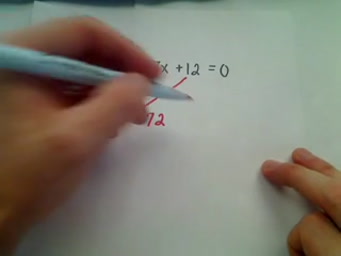 x + 12 = 0
72